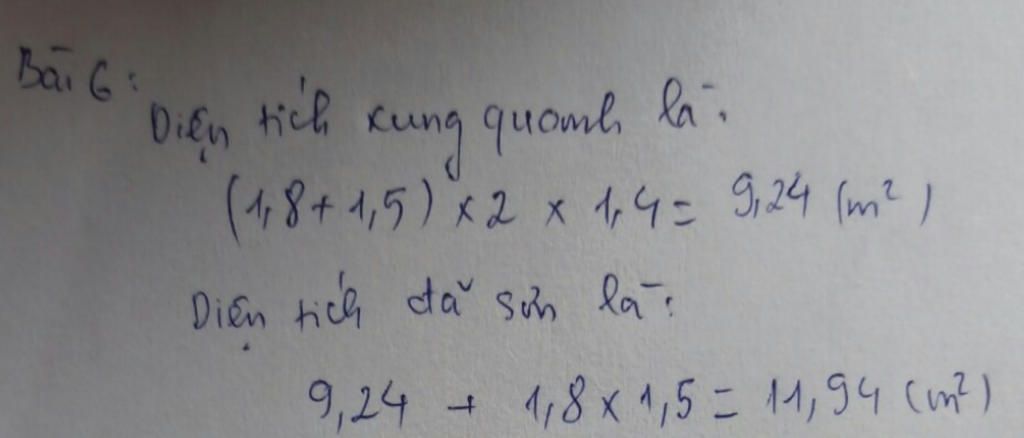 Bài 6:
Diện tích xung quanh là:
(1,8 + 1,5) x 2 x 1,4 = 9,24 (m²)
Diện tích đã sơn là:
9,24 + 1,8 x 1,5 = 11,94 (m²)